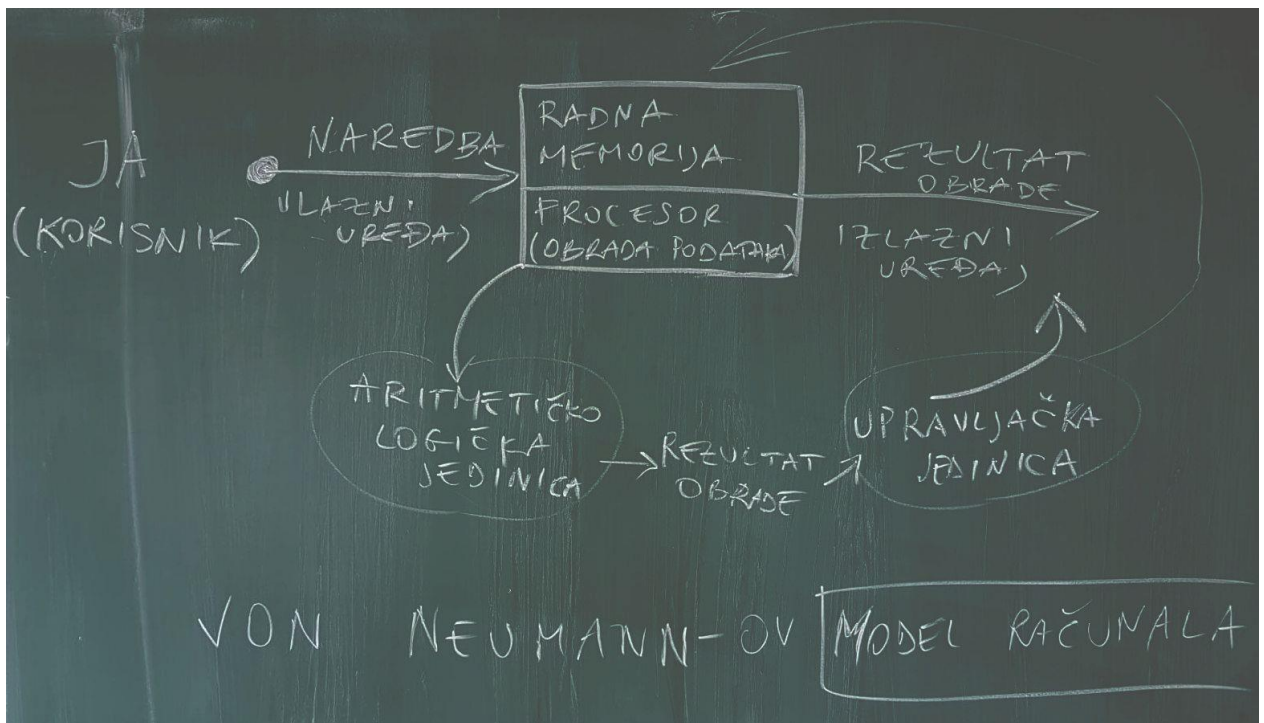 JA
(KORISNIK)
NAREDBA
ULAZNI
UREĐAJ
RADNA
MEMORIJA
PROCESOR
(OBRADA PODATAKA)
REZULTAT
OBRADE
IZLAZNI
UREĐAJ
ARITMETIČKO
LOGIČKA
JEDINICA
REZULTAT
OBRADE
UPRAVLJAČKA
JEDINICA
VON NEUMANN-OV MODEL RAČUNALA